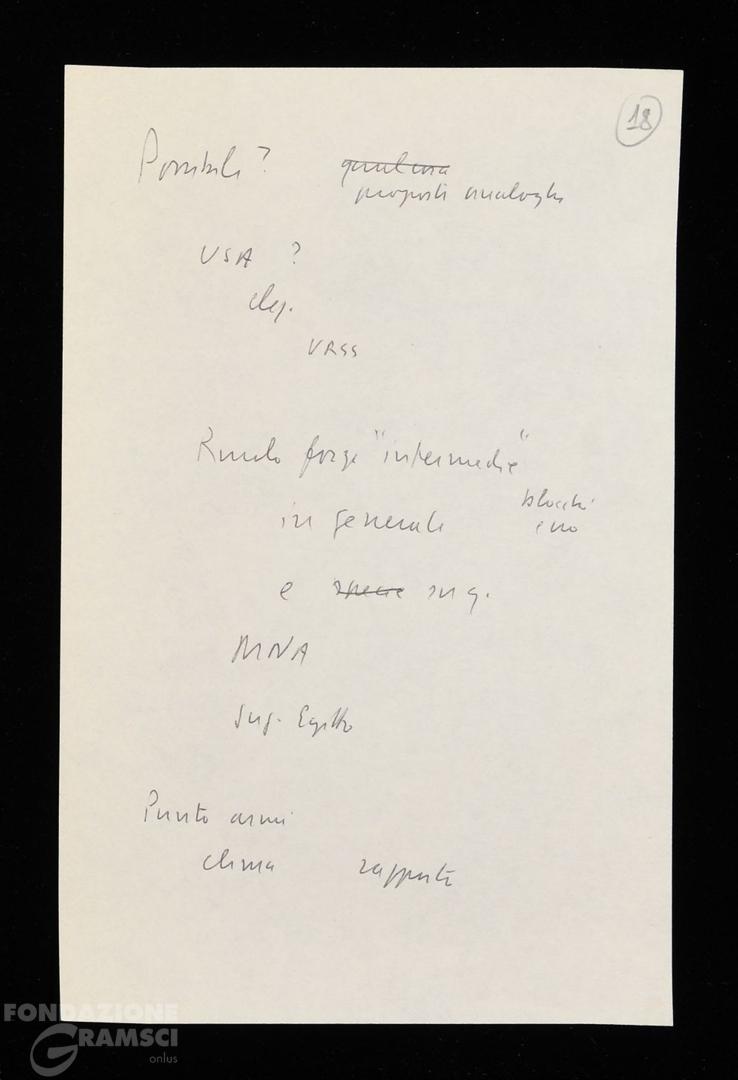 18
Possibile ?
proposte analoghe
USA ?
eleg.
URSS
Ruolo forze "intermedie"
in generale
blocchi
e no
e specie sing.
MNA
Jug. Egitto
Punto armi
clima rapporti
FONDAZIONE
GRAMSCI
onlus